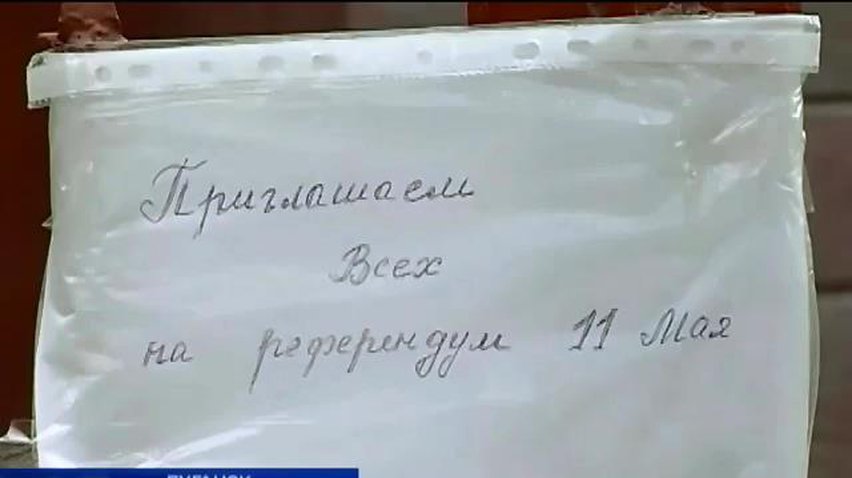 Приглашаем
Всех
на референдум 11 Мая